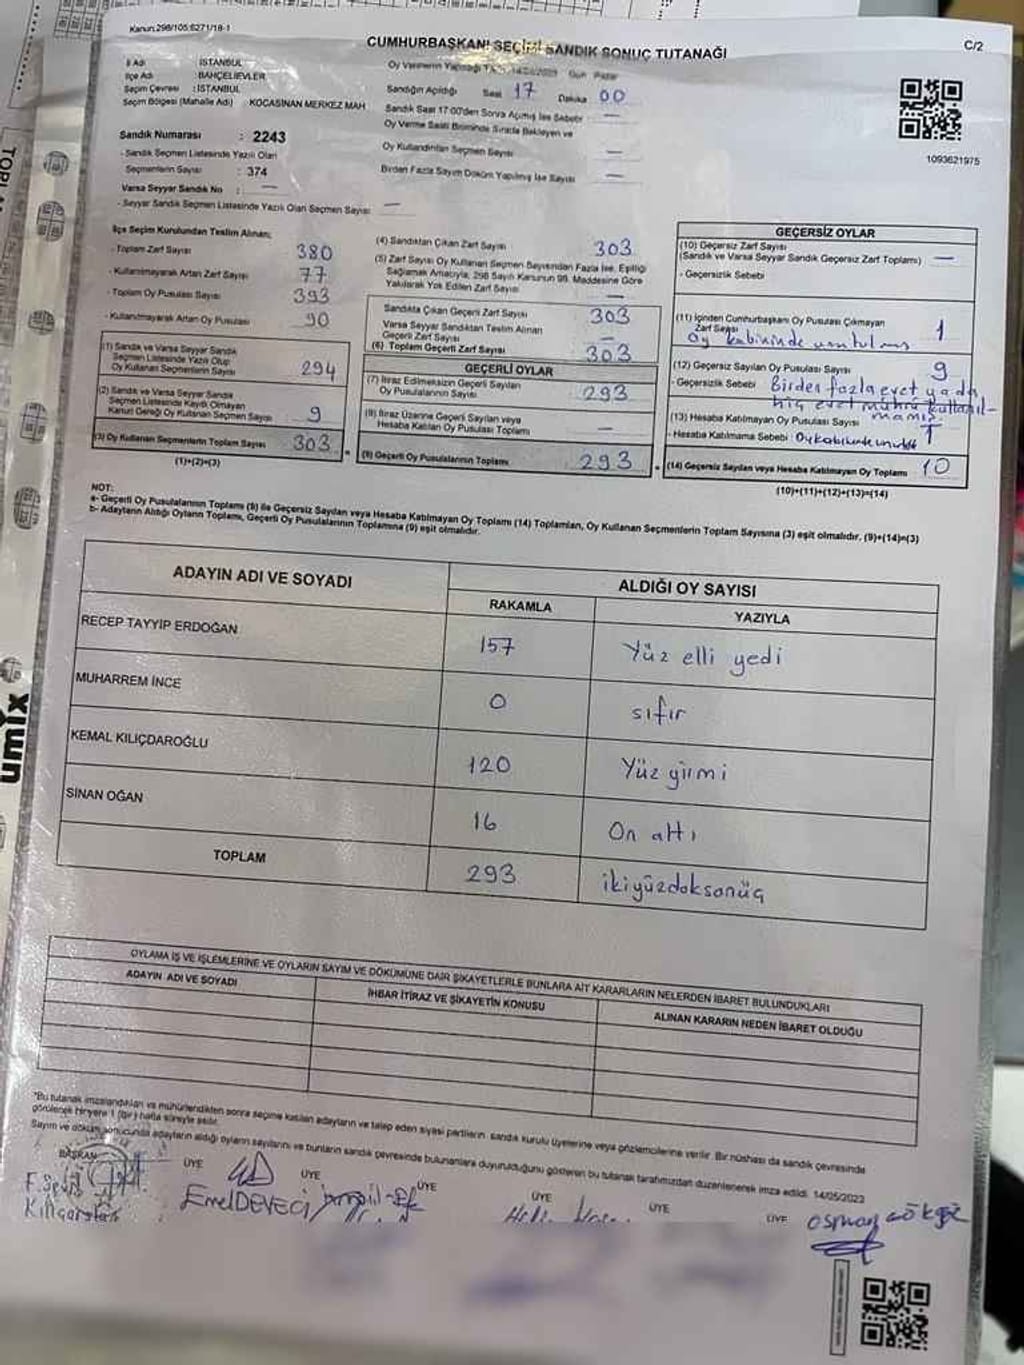 Kanun:298/105:6271/18-1
C/2
CUMHURBAŞKANI SEÇİMİ SANDIK SONUÇ TUTANAĞI
İl Adı : İSTANBUL
İlçe Adı : BAHÇELİEVLER
Seçim Çevresi : İSTANBUL
Seçim Bölgesi (Mahalle Adı) KOCASİNAN MERKEZ MAH
Sandık Numarası : 2243
- Sandık Seçmen Listesinde Yazılı Olan
Seçmenlerin Sayısı : 374
Varsa Seyyar Sandık No : —
- Seyyar Sandık Seçmen Listesinde Yazılı Olan Seçmen Sayısı —
Oy Verminin Yapıldığı 14/05/2023 Gün Pazar
Sandığın Açıldığı Saat 17 Dakika 00
Sandık Saat 17:00'den Sonra Açılmış İse Sebebi —
Oy Verme Saati Bitiminde Sırada Bekleyen ve
Oy Kullandırılan Seçmen Sayısı —
Birden Fazla Sayım Döküm Yapılmış İse Sayısı —
1093621975
İlçe Seçim Kurulundan Teslim Alınan;
- Toplam Zarf Sayısı 380
- Kullanılmayarak Artan Zarf Sayısı 77
- Toplam Oy Pusulası Sayısı 393
- Kullanılmayarak Artan Oy Pusulası 90
(1) Sandık ve Varsa Seyyar Sandık
Seçmen Listesinde Yazılı Olup
Oy Kullanan Seçmenlerin Sayısı 294
(2) Sandık ve Varsa Seyyar Sandık
Seçmen Listesinde Kayıtlı Olmayan
Kanun Gereği Oy Kullanan Seçmen Sayısı 9
(3) Oy Kullanan Seçmenlerin Toplam Sayısı 303
(1)+(2)=(3)
(4) Sandıktan Çıkan Zarf Sayısı 303
(5) Zarf Sayısı Oy Kullanan Seçmen Sayısından Fazla İse, Eşitliği
Sağlamak Amacıyla, 298 Sayılı Kanunun 98. Maddesine Göre
Yakılarak Yok Edilen Zarf Sayısı —
Sandıkta Çıkan Geçerli Zarf Sayısı 303
Varsa Seyyar Sandıktan Teslim Alınan
Geçerli Zarf Sayısı —
(6) Toplam Geçerli Zarf Sayısı 303
GEÇERLİ OYLAR
(7) İtiraz Edilmeksizin Geçerli Sayılan
Oy Pusulalarının Sayısı 293
(8) İtiraz Üzerine Geçerli Sayılan veya
Hesaba Katılan Oy Pusulası Toplamı —
(9) Geçerli Oy Pusulalarının Toplamı 293
GEÇERSİZ OYLAR
(10) Geçersiz Zarf Sayısı
(Sandık ve Varsa Seyyar Sandık Geçersiz Zarf Toplamı) —
- Geçersizlik Sebebi
(11) İçinden Cumhurbaşkanı Oy Pusulası Çıkmayan
Zarf Sayısı 1
Oy kabininde unutulmuş
(12) Geçersiz Sayılan Oy Pusulası Sayısı 9
- Geçersizlik Sebebi Birden fazla evet ya da
hiç evet mührü kullanıl-
mamış
(13) Hesaba Katılmayan Oy Pusulası Sayısı
- Hesaba Katılmama Sebebi
(14) Geçersiz Sayılan veya Hesaba Katılmayan Oy Toplamı 10
(10)+(11)+(12)+(13)=(14)
NOT:
a- Geçerli Oy Pusulalarının Toplamı (9) ile Geçersiz Sayılan veya Hesaba Katılmayan Oy Toplamı (14) Toplamları, Oy Kullanan Seçmenlerin Toplam Sayısına (3) eşit olmalıdır. (9)+(14)=(3)
b- Adayların Aldığı Oyların Toplamı, Geçerli Oy Pusulalarının Toplamına (9) eşit olmalıdır.
ADAYIN ADI VE SOYADI
ALDIĞI OY SAYISI
RAKAMLA YAZIYLA
RECEP TAYYİP ERDOĞAN 157 Yüz elli yedi
MUHARREM İNCE 0 sıfır
KEMAL KILIÇDAROĞLU 120 Yüz yirmi
SİNAN OĞAN 16 On altı
TOPLAM 293 ikiyüzdoksanüç
OYLAMA İŞ VE İŞLEMLERİNE VE OYLARIN SAYIM VE DÖKÜMÜNE DAİR ŞİKAYETLERLE BUNLARA AİT KARARLARIN NELERDEN İBARET BULUNDUKLARI
ADAYIN ADI VE SOYADI İHBAR İTİRAZ VE ŞİKAYETİN KONUSU ALINAN KARARIN NEDEN İBARET OLDUĞU
*Bu tutanak imzalandıktan ve mühürlendikten sonra seçime katılan adayların ve talep eden siyasi partilerin sandık kurulu üyelerine veya gözlemcilerine verilir. Bir nüshası da sandık çevresinde
görülecek bir yere 1 (bir) hafta süreyle asılır.
Sayım ve döküm sonucunda adayların aldığı oyların sayılarını ve bunların sandık çevresinde bulunanlara duyurulduğunu gösteren bu tutanak tarafımızdan düzenlenerek imza edildi. 14/05/2023
BAŞKAN ÜYE ÜYE ÜYE ÜYE ÜYE ÜYE
Emel DEVECİ
osman GÖKGÖZ
umix